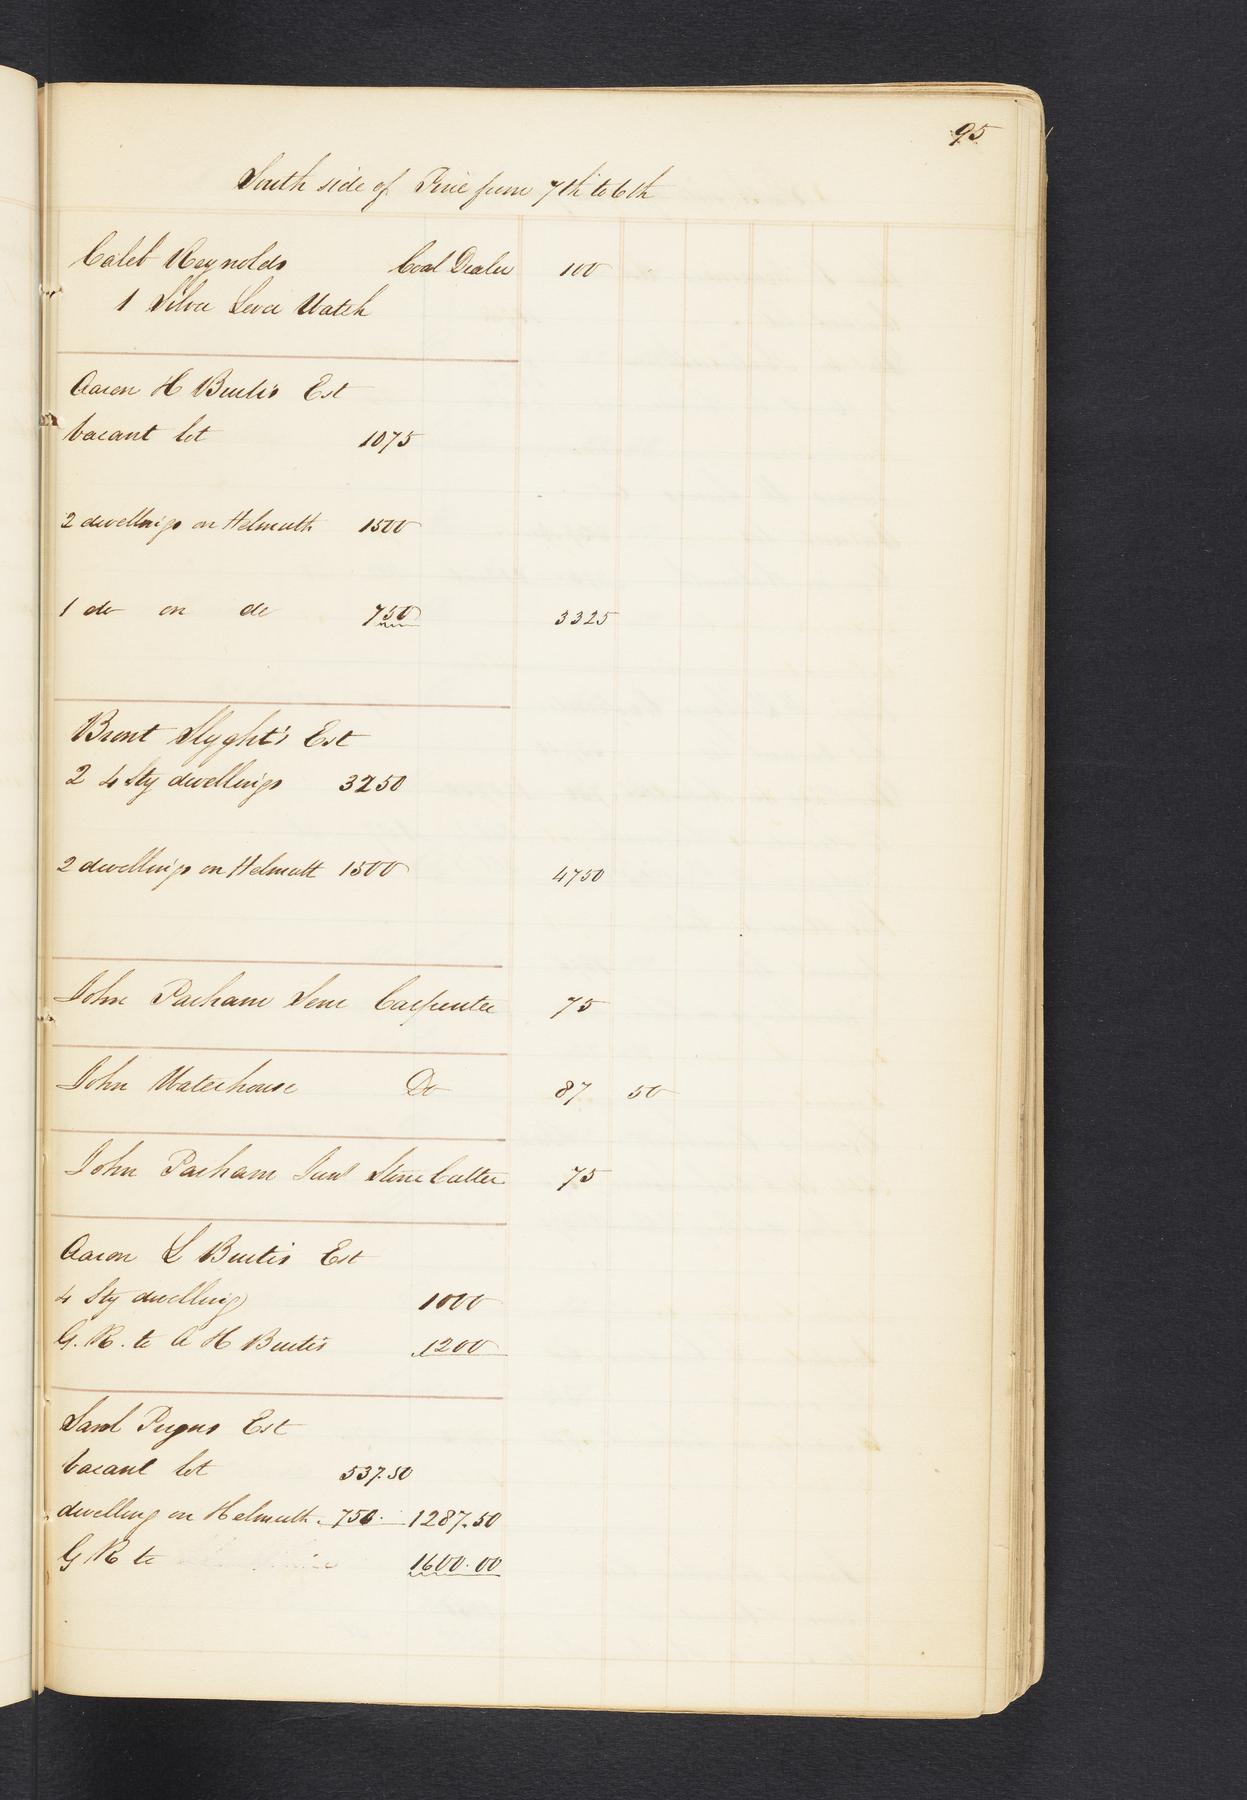 95
South side of Pine from 7th to 6th
Caleb Reynolds Coal Dealer 100
1 Silver Lever Watch
Aaron H Burtis Est
vacant lot 1075
2 dwellings on Helmuth 1500
1 do on do 750 3325
Brent Slyght's Est
2 4 Sty dwellings 3250
2 dwellings on Helmuth 1500 4750
John Parham Senr Carpenter 75
John Waterhouse Do 87 50
John Parham Junr Stone Cutter 75
Aaron L Burtis Est
4 Sty dwelling 1000
G. R. to A H Burtis 1200
Saml Est
vacant lot 537.50
dwelling on Helmuth 750. 1287.50
G R to 1600.00